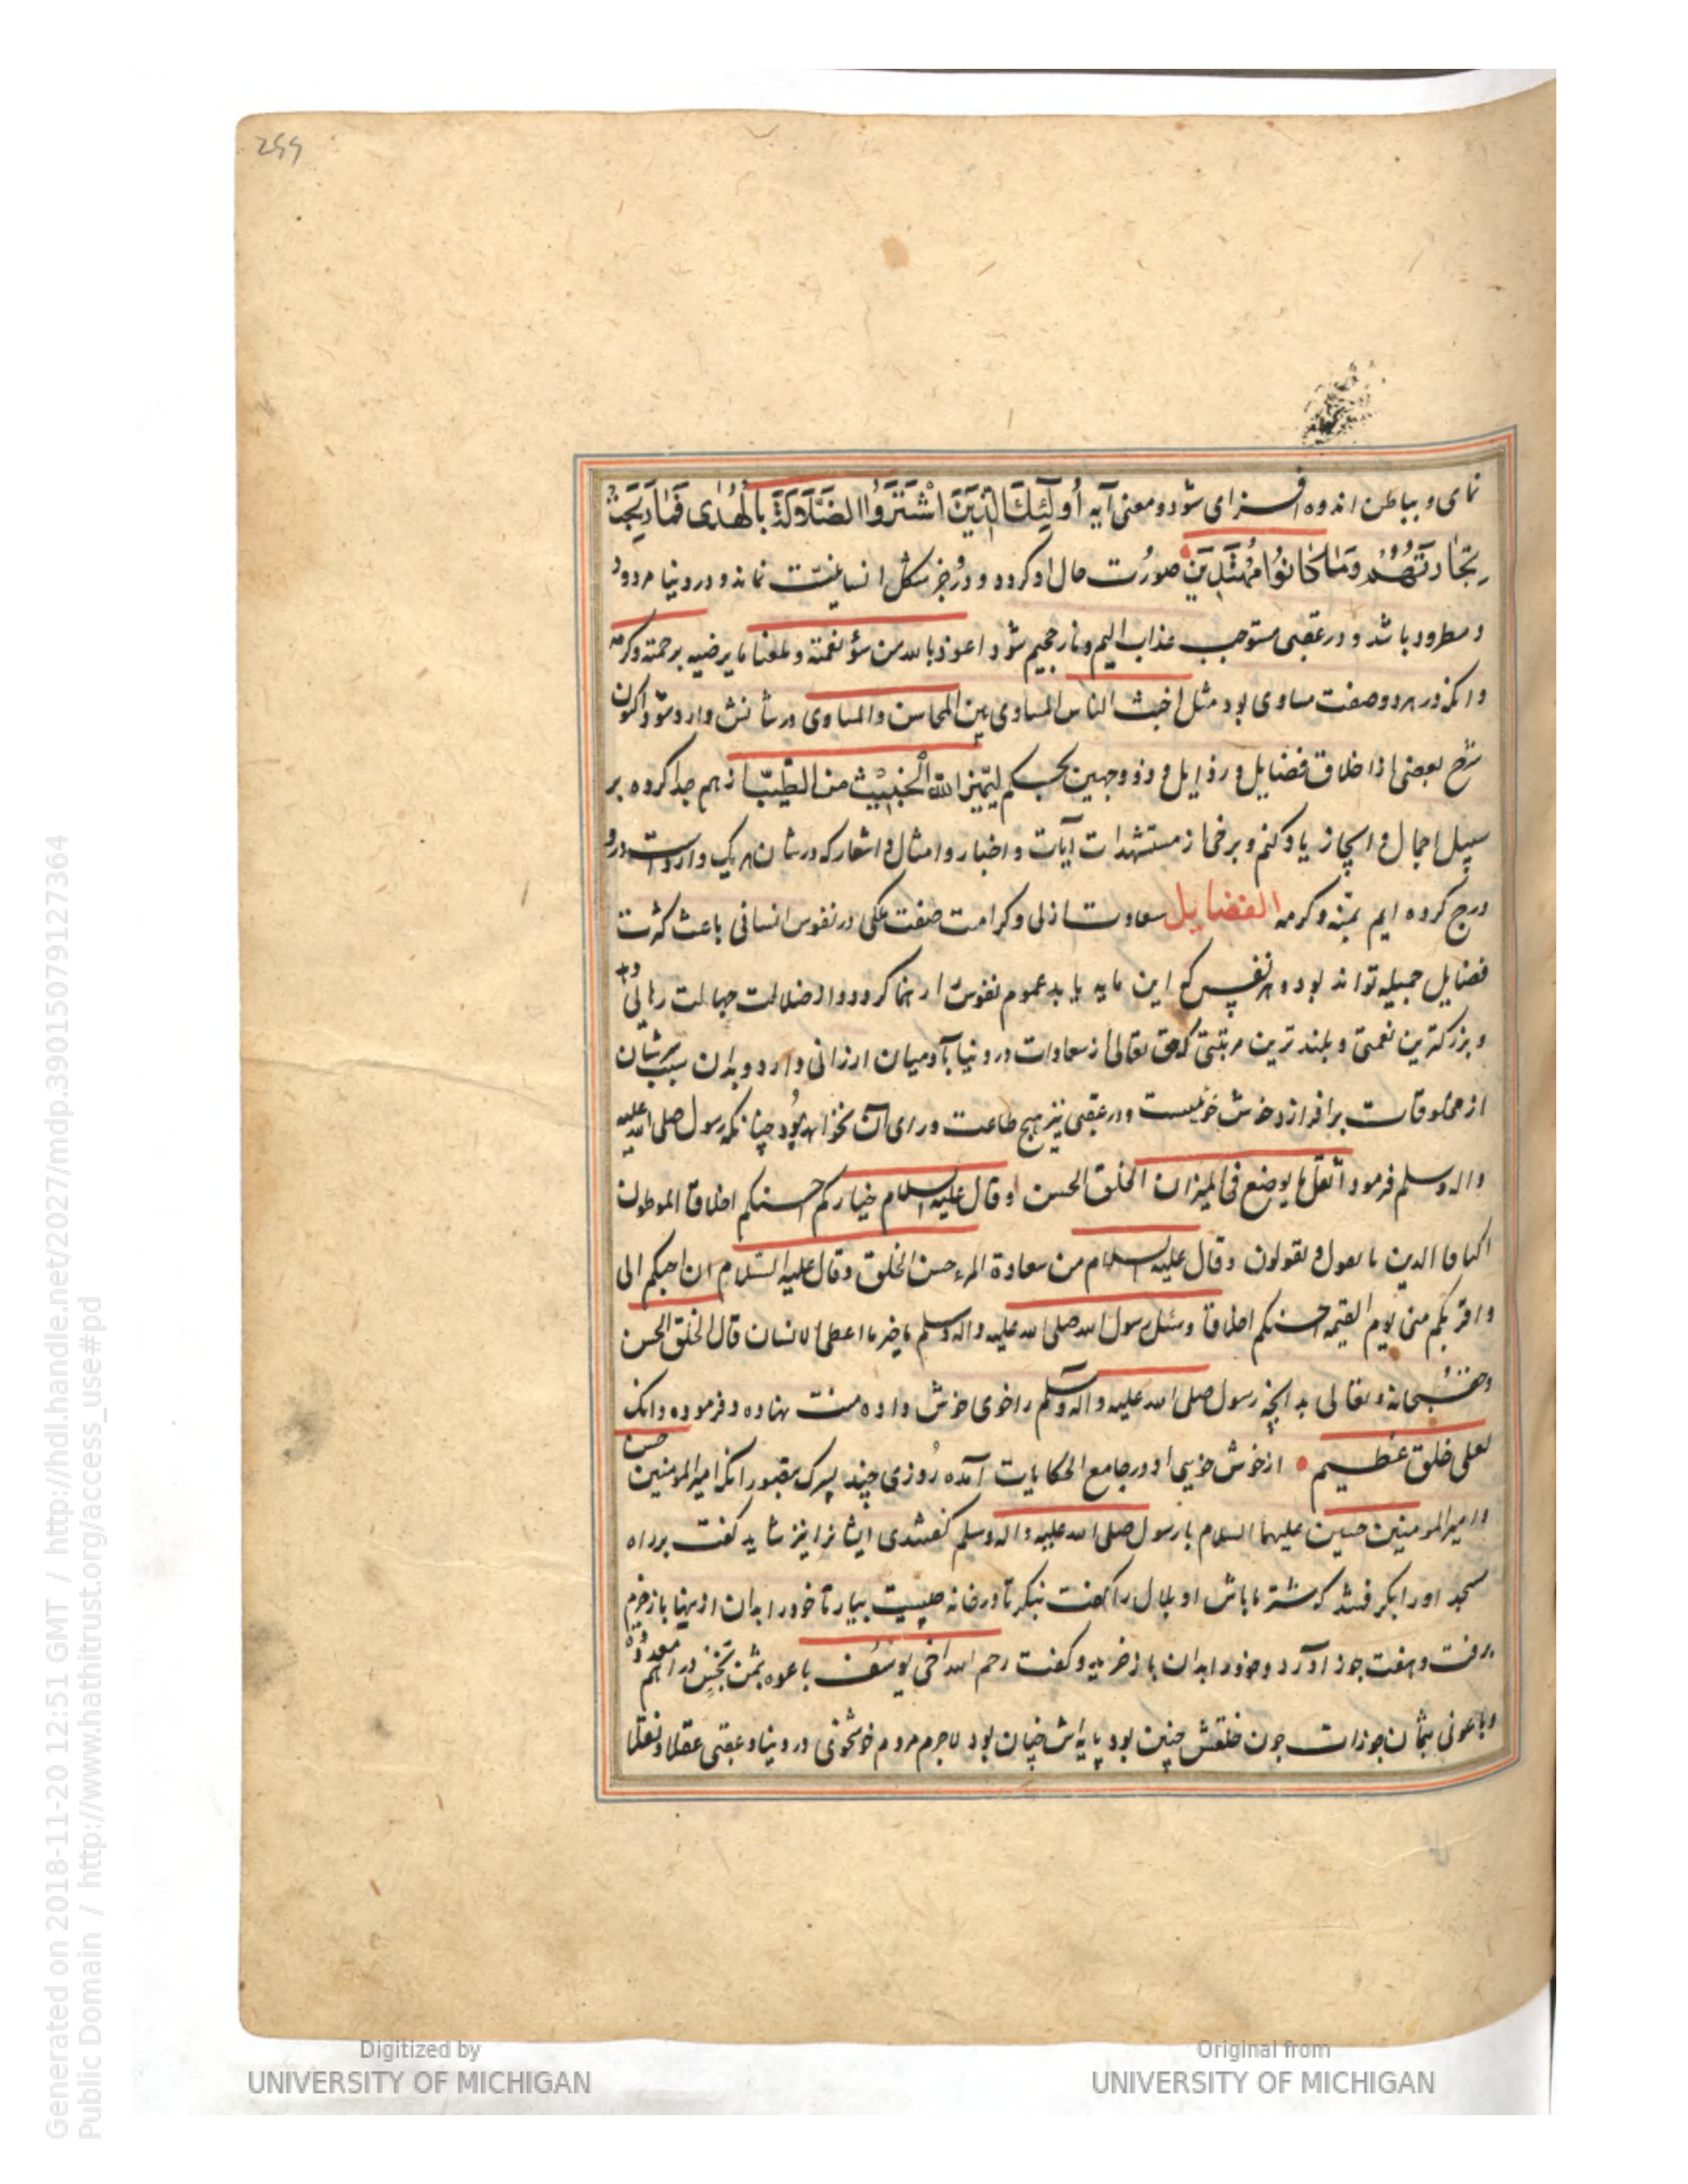 299
نمای و بباطن اندوه افزای شود و معنی آیه أُولَٰئِكَ الَّذِينَ اشْتَرَوُا الضَّلَالَةَ بِالْهُدَىٰ فَمَا رَبِحَتْ
تِجَارَتُهُمْ وَمَا كَانُوا مُهْتَدِينَ صورت حال او کردد و در جز شکل انسانیت نماند و در دنیا مردود
و مطرود باشد و در عقبی مستوجب عذاب الیم و نار جحیم شود اعوذ بالله من سؤ نقمته و بلغنا ما یرضیه برحمته و کرمه
و انکه در هر دو صفت مساوی بود مثل اخبث الناس المساوی بین المحاسن والمساوی در شانش وارد شود اکنون
شرح بعضی از اخلاق فضایل و رذایل و ذو وجهین بحکم لیمیز الله الخبیث من الطیب از هم جدا کرده بر
سبیل اجمال و ایجاز یاد کنم و برخی از مستشهدات آیات و اخبار و امثال و اشعار که در شان هر یک واردست درو
درج کرده ایم بمنه و کرمه الفضایل سعادت ازلی و کرامت صفت ملکی در نفوس انسانی باعث کثرت
فضایل جمیله تواند بود و هر نفس که این مایه یابد عموم نفوس را رهنما کردد و از ضلالت جهالت رهائی دهد
و بزرکترین نعمتی و بلندترین مرتبتی که حق تعالی از سعادات در دنیا بآدمیان ارزانی دارد و بدان سبب شان
از مخلوقات برافرازد خوش خوئیست و در عقبی نیز هیچ طاعت ورای آن نخواهد بود چنانکه رسول صلی الله علیه
واله وسلم فرمود اثقل ما یوضع فی المیزان الخلق الحسن و قال علیه السلام خیارکم احسنکم اخلاقا الموطون
اکنافا الذین یالفون و یؤلفون و قال علیه السلام من سعادة المرء حسن الخلق وقال علیه السلام ان احبکم الی
واقربکم منی یوم القیمه احسنکم اخلاقا وسئل رسول الله صلی الله علیه واله وسلم ما خیر ما اعطی الانسان قال الخلق الحسن
و حق سبحانه و تعالی بدانچه رسول صلی الله علیه واله وسلم را خوی خوش داده منت نهاده و فرموده وانک
لعلی خلق عظیم از خوش خویی او در جامع الحکایات آمده روزی چند پسرک بتصور انکه امیرالمومنین حسن
و امیرالمومنین حسین علیهما السلام با رسول صلی الله علیه واله وسلم کفتندی ایشانرا نیز شاید کفت بر راه
مسجد او را بکرفتند که شتر ما باش او بلال را کفت بنکر تا در خانه چیست بیار تا خود را بدان از ینها بازخرم
برفت و هفت جوز آورد و خود را بدان بازخرید و کفت رحم الله اخی یوسف باعوه بثمن بخس دراهم معدودة
وباعونی بثمان جوزات چون خلقش چنین بود پایه اش چنان بود لاجرم مردم خوشخوی در دنیا و عقبی عقلا و نقلا
Digitized by
UNIVERSITY OF MICHIGAN
Original from
UNIVERSITY OF MICHIGAN
Generated on 2018-11-20 12:51 GMT / http://hdl.handle.net/2027/mdp.39015079127364
Public Domain / http://www.hathitrust.org/access_use#pd